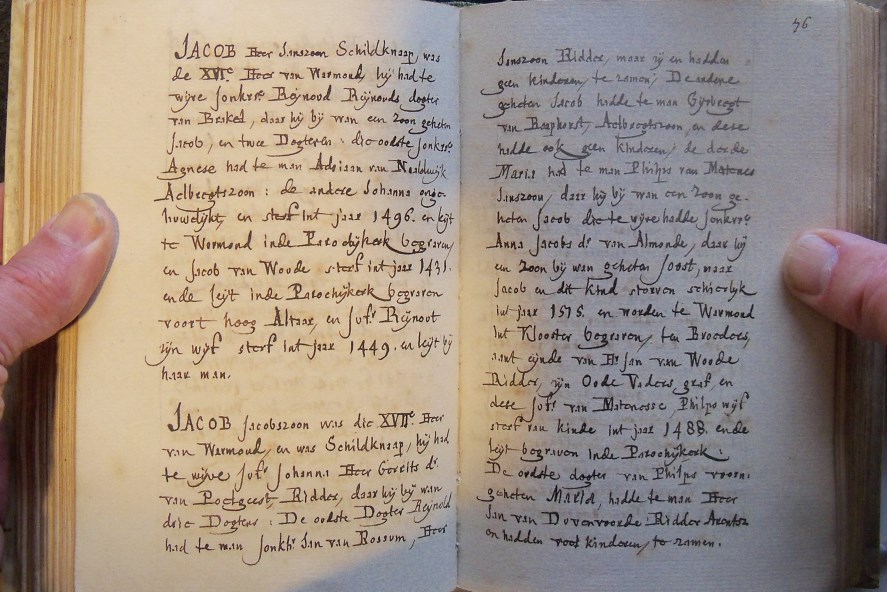 JACOB Heer Janszoon Schildknaap, was
de XVI.e Heer van Warmond, hij had te
wijve Jonkvr.e Reijnoud Reijnouds dogter
van Brakel, daar hij bij wan een zoon geheten
Jacob, en twee Dogteren: die oudste Jonkvr.e
Agniese had te man Adriaan van Naaldwijk
Aelbregtszoon: de andere Johanna onge-
huwelijkt, en sterf int jaar 1496. en leijt
te Warmond inde Parochijkerk begraven,
en Jacob van Woude sterf int jaar 1431.
ende leijt inde Parochijkerk begraven
voort hoog Altaar, en Jof.r Reijnout
zijn wijf sterf int jaar 1449. en leijt bij
haar man.
JACOB Jacobszoon was die XVII.e Heer
van Warmond, en was Schildknaap, hij had
te wijve Jof.r Johanna Heer Gerrits d.r
van Poelgeest, Ridder, daar hij bij wan
drie Dogters: De oudste Dogter Reijnold
had te man Jonkh.r Jan van Rossum, Heer
46
Janszoon Ridder, maar zij en hadden
geen kinderen, te zamen; De andere
geheten Jacob hadde te man Gijsbregt
van Raaphorst, Aelbregtszoon, en dese
hadde ook geen kinderen, de derde
Maria had te man Philips van Matenes
Janszoon, daar hij bij wan een zoon ge-
heten Jacob die te wijve hadde Jonkvr.e
Anna Jacobs d.r van Almonde, daar hij
en zoon bij wan geheten Joost, maar
Jacob en dit kind storven schierlijk
int jaar 1515. en worden te Warmond
int Klooster begraven, ten Broeders,
aant eijnde van H.r Jan van Woude
Ridder, zijn Oude Vaders, graf, en
dese Jof.r van Matenesse, Philps wijf
sterf van kinde int jaar 1488. ende
leijt begraven inde Parochijkerk:
De oudste dogter van Philps voorn:
geheten Maria, hadde te man Heer
Jan van Duvenvoorde Ridder Arentsz
en hadden veel kinderen, te zamen.